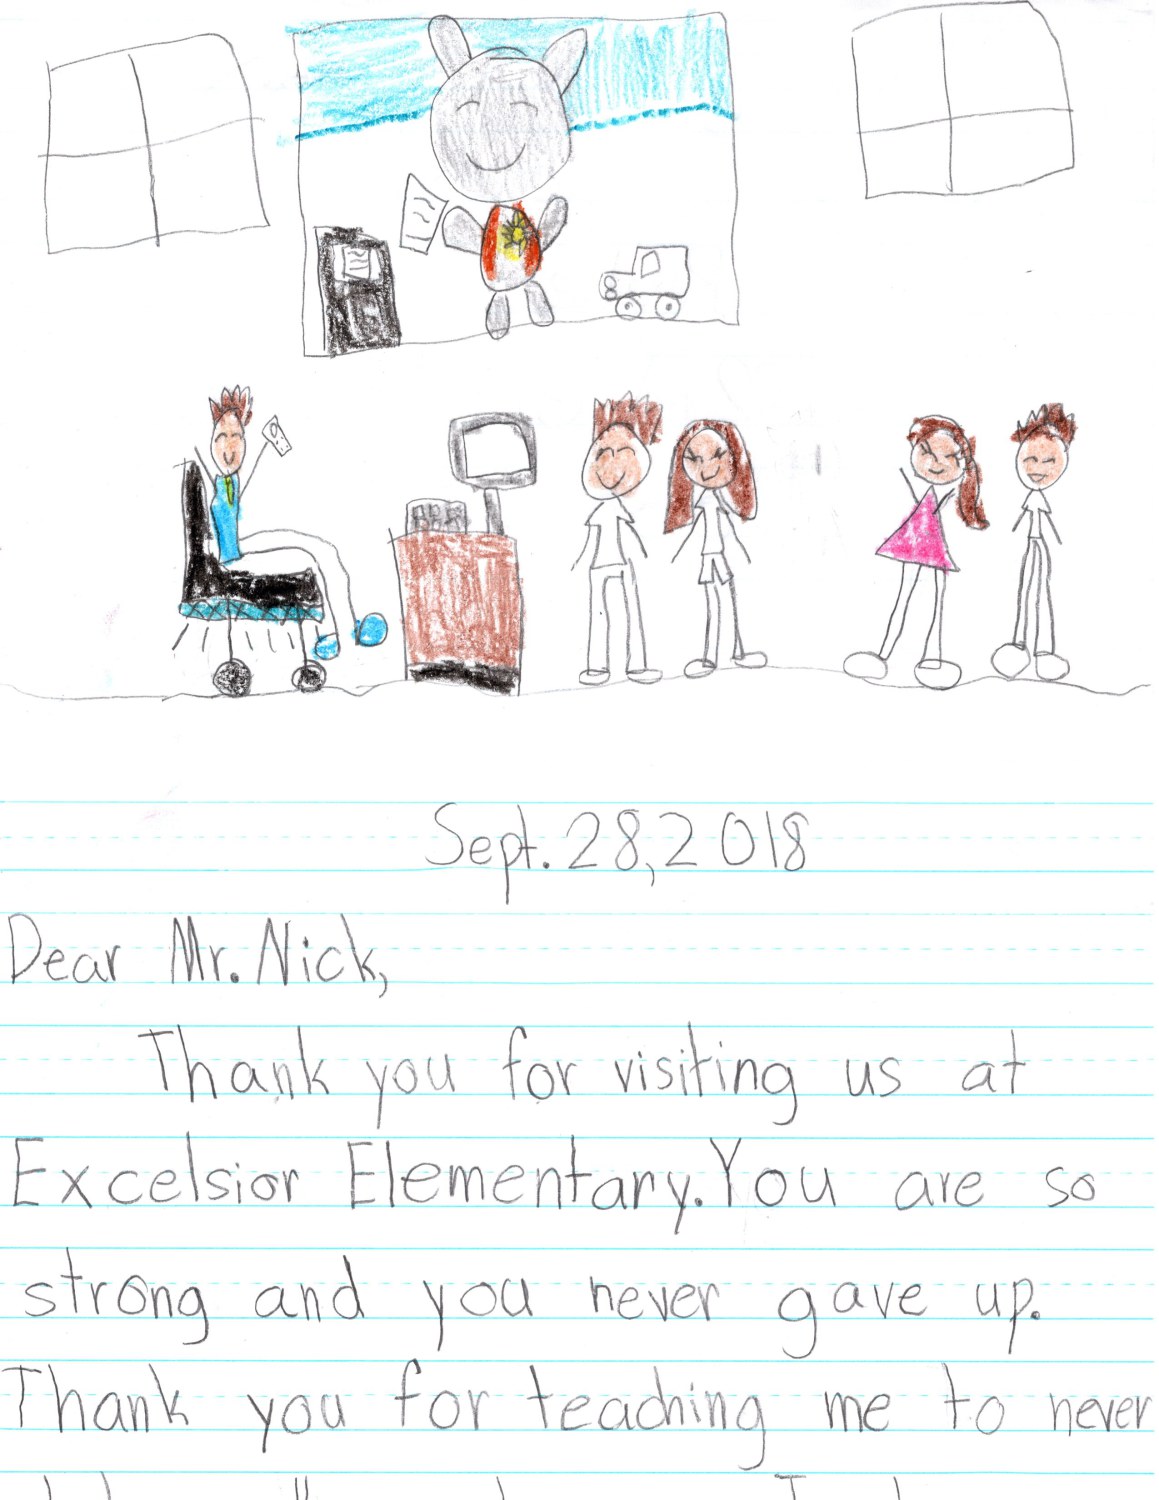 Sept. 28, 2018
Dear Mr. Nick,
Thank you for visiting us at
Excelsior Elementary. You are so
strong and you never gave up.
Thank you for teaching me to never